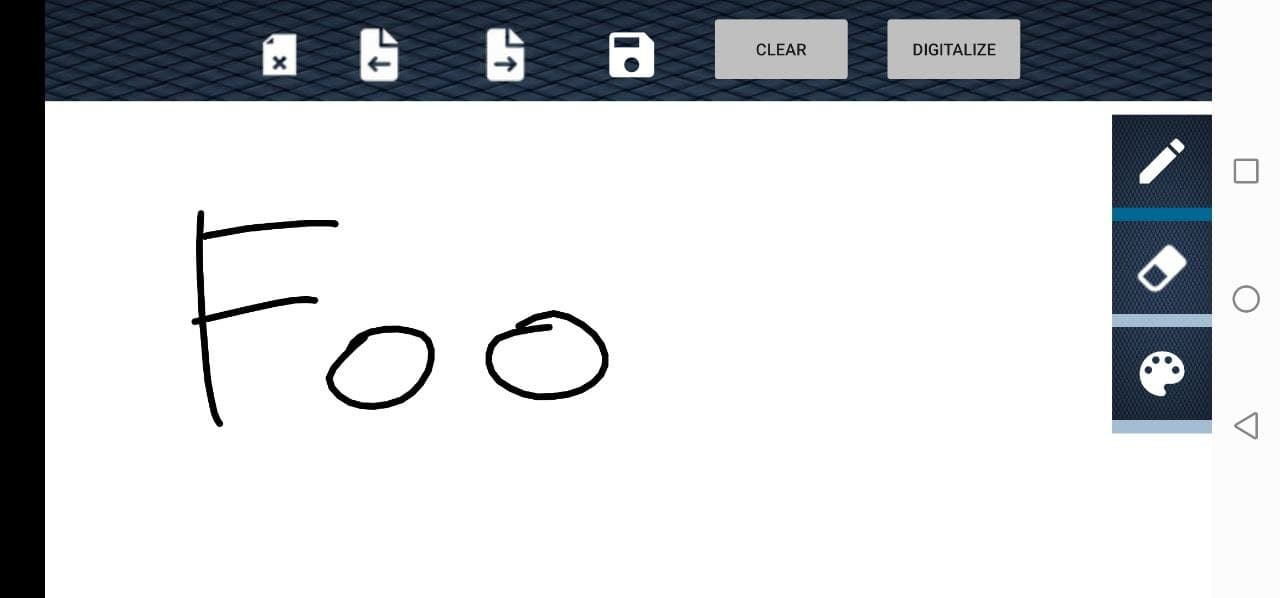 CLEAR DIGITALIZE
Foo